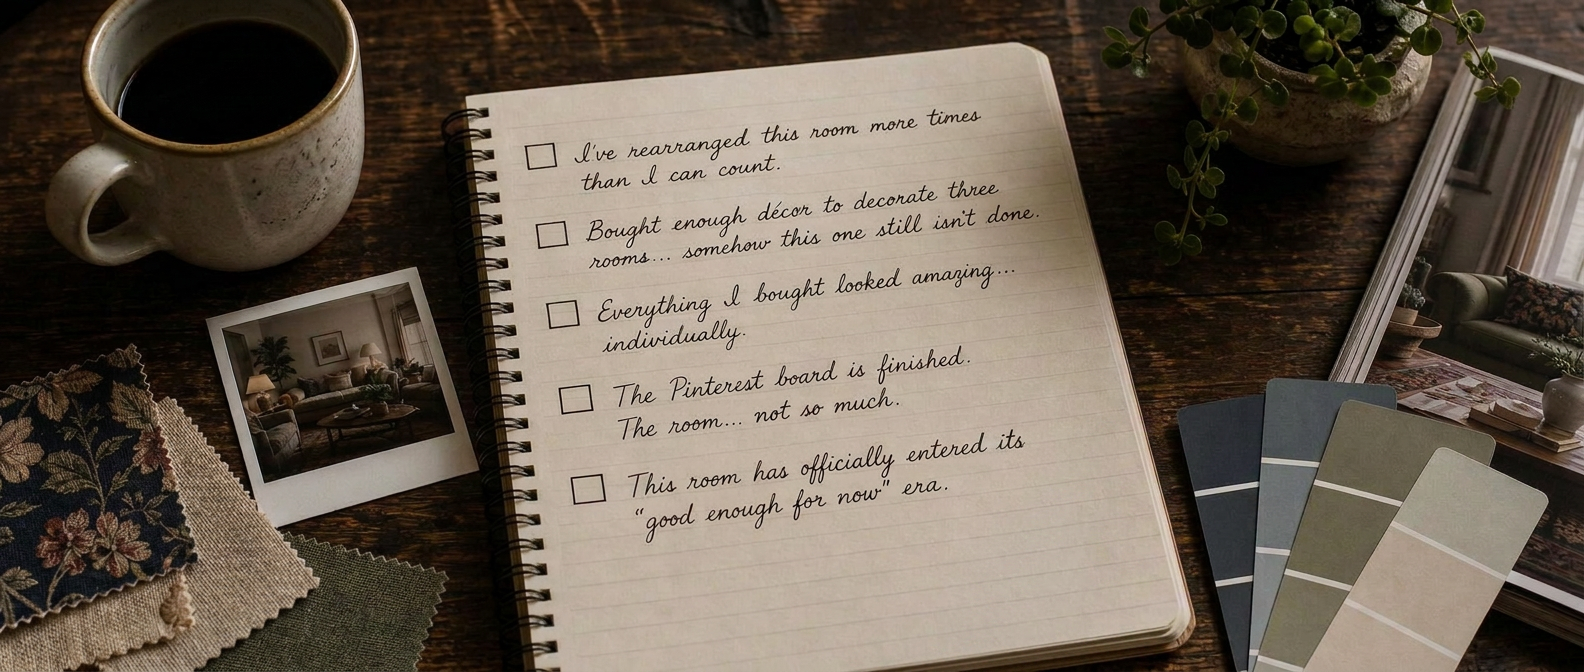 I've rearranged this room more times
than I can count.
Bought enough décor to decorate three
rooms... somehow this one still isn't done.
Everything I bought looked amazing...
individually.
The Pinterest board is finished.
The room... not so much.
This room has officially entered its
"good enough for now" era.